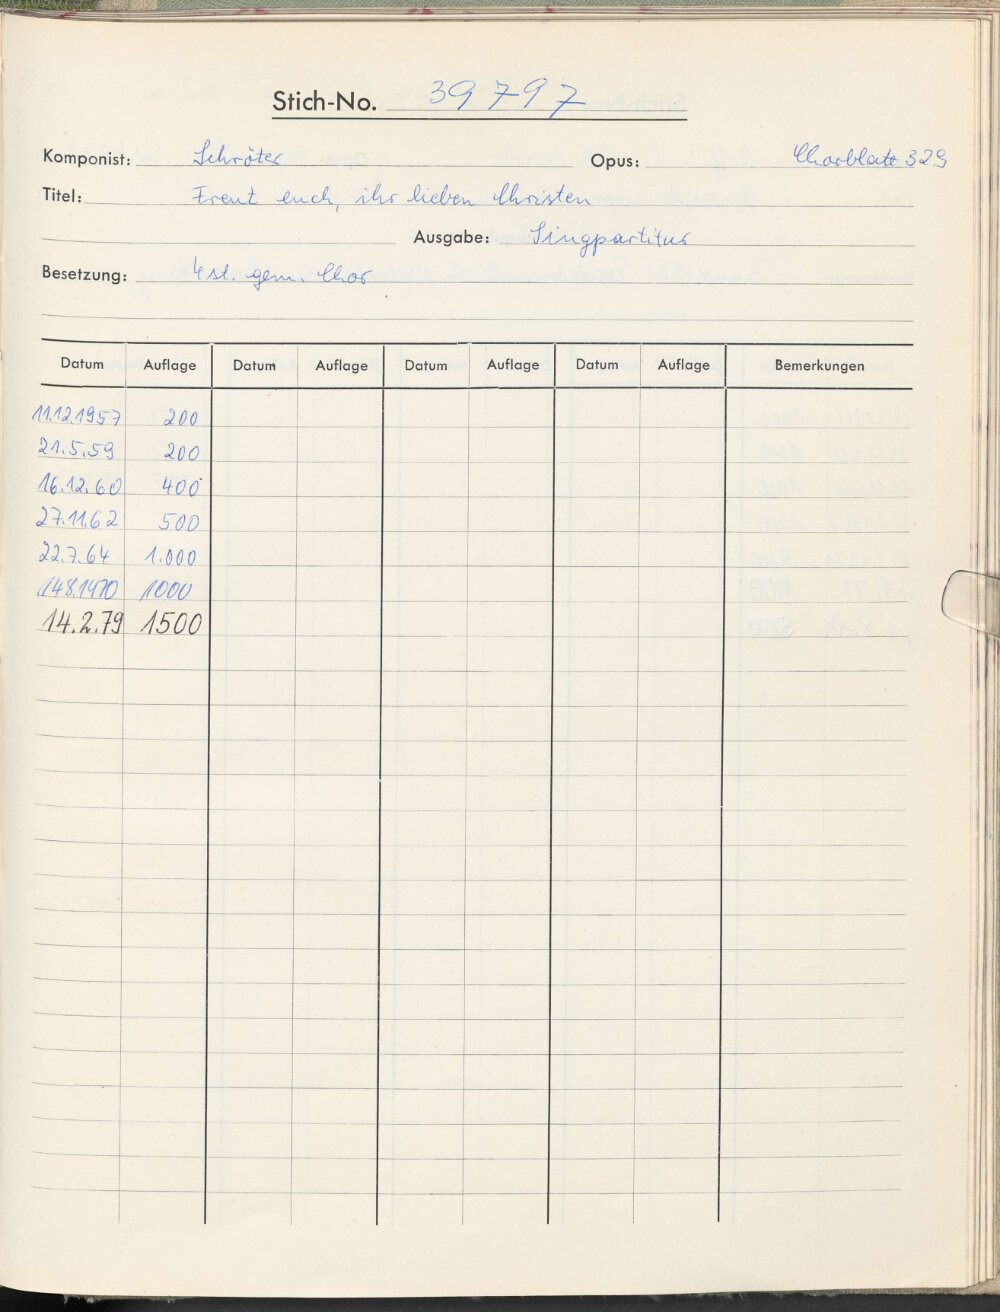 Stich-No. 39797
Komponist: Schröter Opus: Chorblatt 329
Titel: Freut euch, ihr lieben Christen
Ausgabe: Singpartitur
Besetzung: 4st. gem. Chor
Datum Auflage Datum Auflage Datum Auflage Datum Auflage Bemerkungen
11.12.1957 200
21.5.59 200
16.12.60 400
27.11.62 500
22.7.64 1.000
14.8.1970 1000
14.2.79 1500